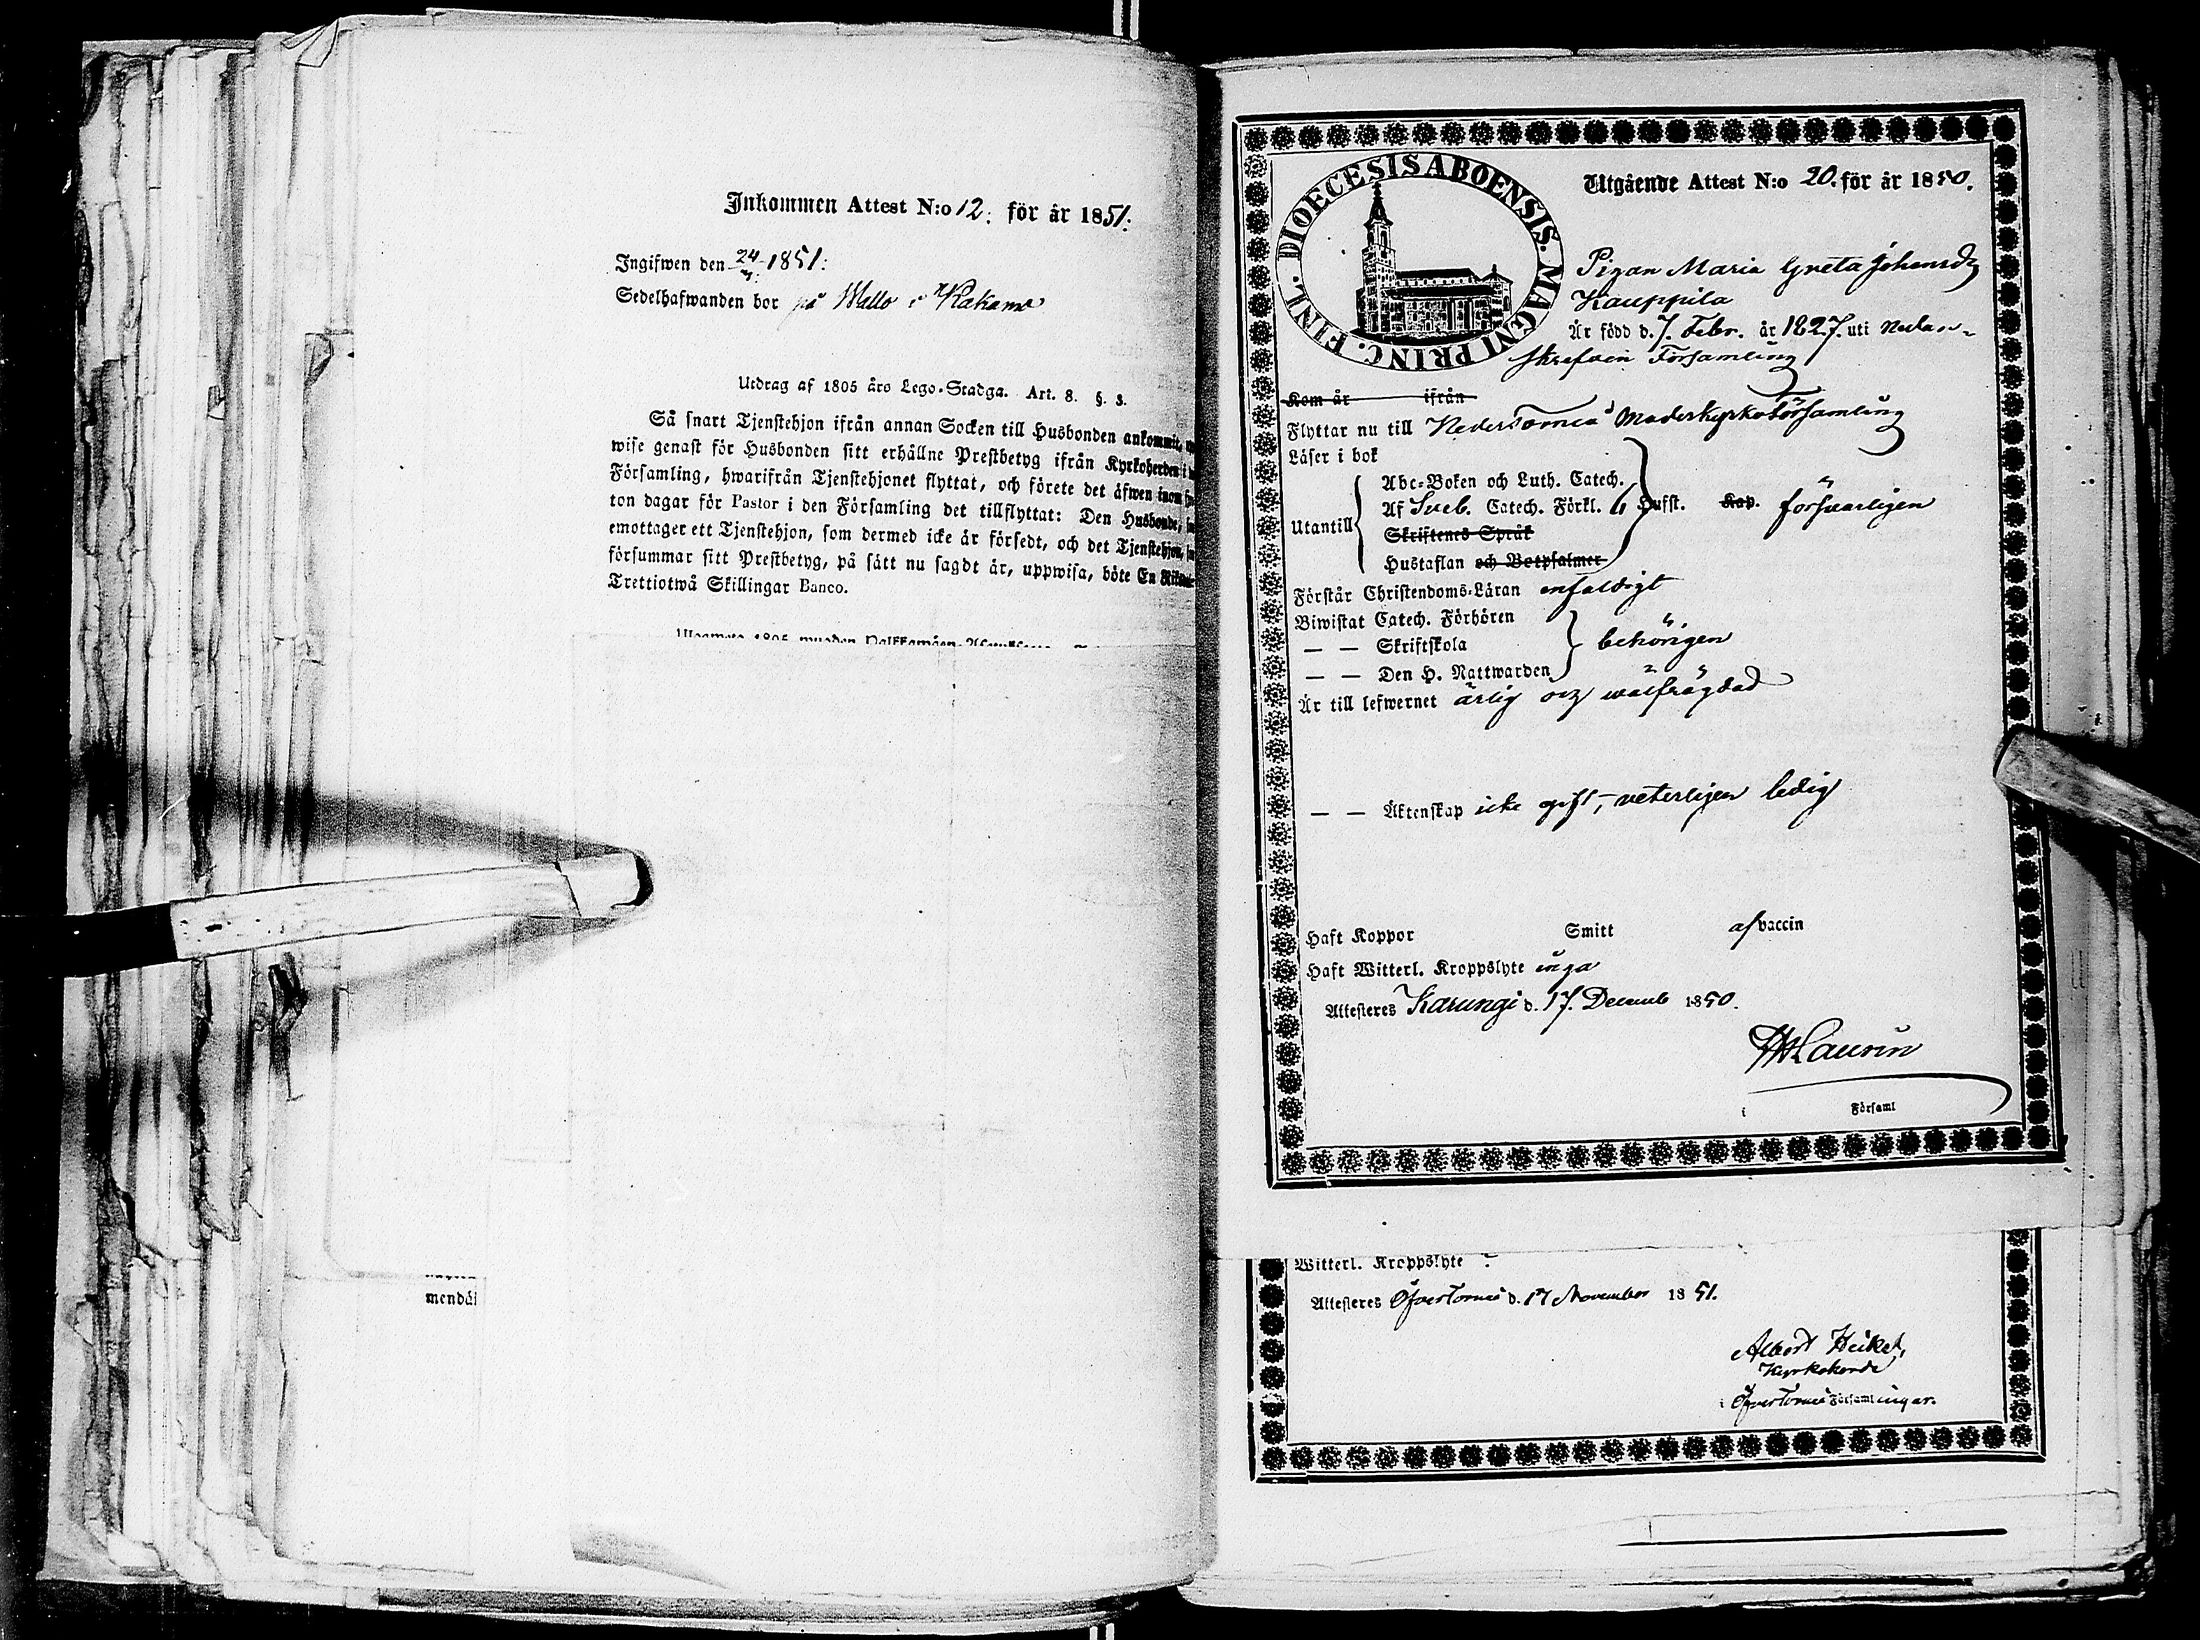 Inkommen Attest N:o 12. för år 1851.
Ingifwen den 24/3 1851.
Sedelhafwanden bor på Wallo i Kakamo
Utdrag af 1805 års Lego-Stadga. Art. 8. §. 3.
Så snart Tjenstehjon ifrån annan Socken till Husbonden ankommit,
wise genast för Husbonden sitt erhållne Prestbetyg ifrån Kyrkoherden i
Församling, hwarifrån Tjenstehjonet flyttat, och förete det äfwen inom
ton dagar för Pastor i den Församling det tillflyttat: Den Husbonde,
emottager ett Tjenstehjon, som dermed icke är försedt, och det Tjenstehjon,
försummar sitt Prestbetyg, på sätt nu sagdt är, uppwisa, böte En
Trettiotwå Skillingar Banco.
mendål
DIOECESIS ABOENSIS. MAGNI PRINC. FINL.
Utgående Attest N:o 20. för år 1850.
Pigan Maria Greta Johansdr
Kauppila
Är född d. 7. Febr. år 1827. uti Nedan-
skrefven Församling
Kom år ifrån
Flyttar nu till Nedertorneå Moderkyrkoförsamling
Läser i bok
Abc-Boken och Luth. Catech.
Utantill Af Sveb. Catech. Förkl. 6 Hufst. Kap. försvarligen
Skriftenes Språk
Hustaflan och Botpsalmer
Förstår Christendoms-Läran enfaldigt
Biwistat Catech. Förhören
— — Skriftskola behörigen
— — Den H. Nattwarden
Är till lefwernet ärlig och wälfrägdad
— — Äktenskap icke gift, veterligen ledig
Haft Koppor Smitt af vaccin
Haft Witterl. Kroppslyte inga
Attesteres Karungi d. 17. Decemb 1850.
Laurin
i Församl
Witterl. Kroppslyte
Attesteres Öfvertorneå d. 17 November 1851.
Albert Heikel,
Kyrkoherde
i Öfvertorneå Församlingar.